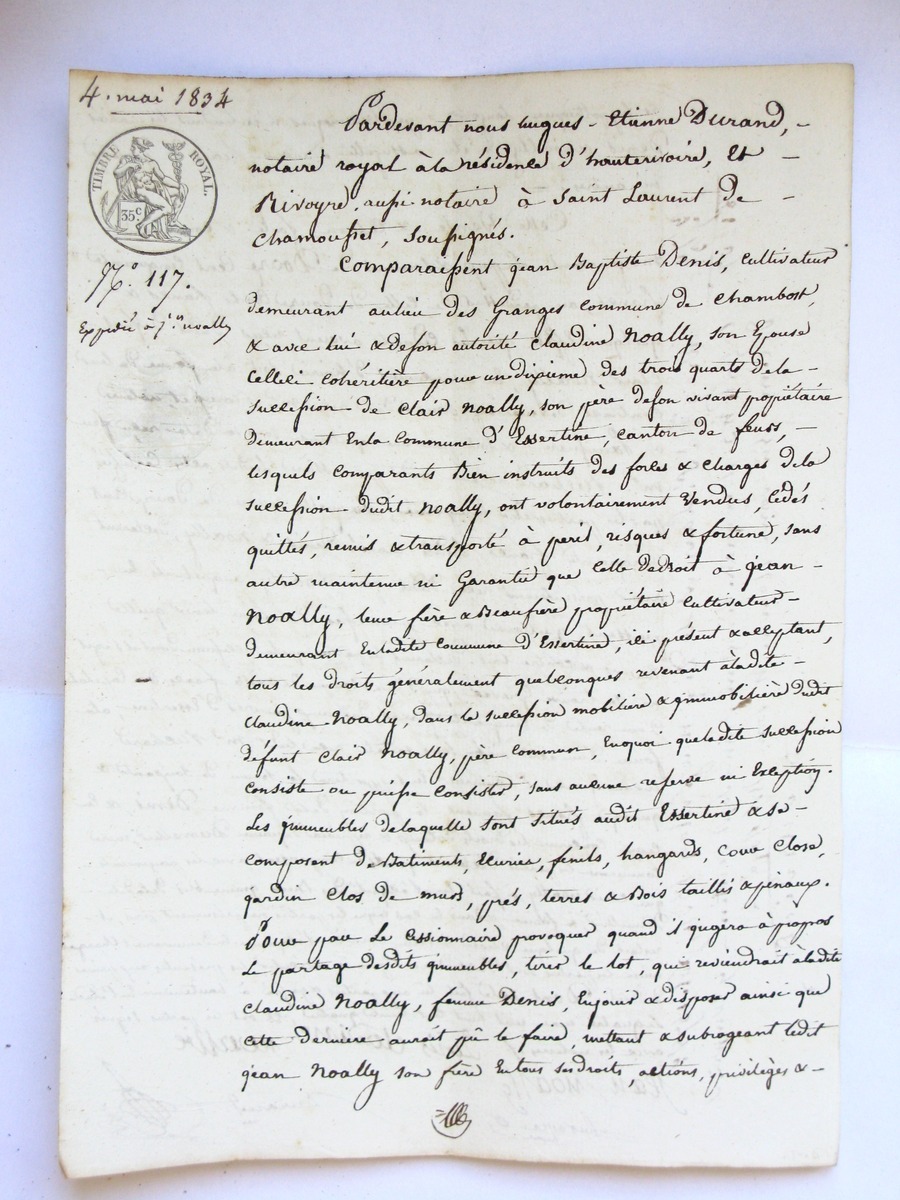 4. mai 1834
TIMBRE ROYAL.
35c.
N.º 117.
Expédié à j.n noally
Pardevant nous hugues - Etienne Durand, -
notaire royal à la résidence d'hauterivoire, Et -
Rivoyre, aussi notaire à Saint Laurent de -
Chamousset, soussignés.
Comparaissent jean Baptiste Denis, cultivateur
demeurant au lieu des Granges commune de chambost,
& avec lui & de son autorité claudine Noally, son Epouse
celleci cohéritière pour un dixieme des trois quarts de la -
succession de Clair Noally, son père de son vivant propriétaire
demeurant En la Commune d'Essertine, canton de feurs, -
lesquels comparants Bien instruits des forces & charges de la
succession dudit Noally, ont volontairement Vendus, cédés
quittés, remis & transporté à peril, risques & fortune, sans
autre maintenue ni Garantie que celle de droit à jean -
Noally, leur frère & Beaufrère propriétaire cultivateur -
demeurant En ladite Commune d'Essertine, ici présent & acceptant,
tous les droits généralement quelconques revenant à ladite -
claudine Noally, dans la succession mobilière & immobilière dudit
défunt Clair Noally, père commun, En quoi que ladite succession
consiste ou puisse consister, sans aucune reserve ni Exception.
Les immeubles de laquelle sont situés audit Essertine & se -
composent de Batiments, Ecuries, fenils, hangards, cour close,
jardin clos de murs, prés, terres & Bois taillis & pinaux.
Pour par Le cessionnaire provoquer quand il jugera à propos
Le partage desdits immeubles, tirer le lot, qui reviendrait à ladite
Claudine Noally, femme Denis, En jouir & disposer ainsi que
cette dernière aurait pû le faire, mettant & subrogeant ledit
jean Noally son frère En tous ses droits, actions, privilèges & -